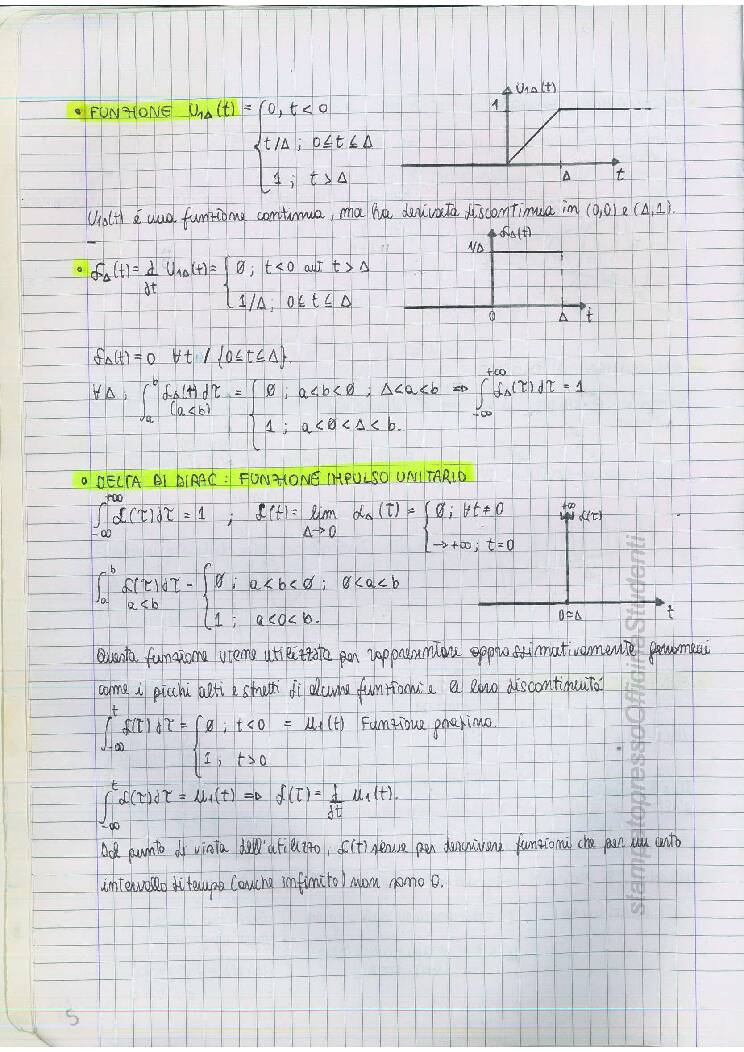 • FUNZIONE U₁Δ(t) = { 0, t < 0
t/Δ ; 0 ≤ t ≤ Δ
1 ; t > Δ
U₁Δ(t)
1
Δ
t
U₁Δ(t) é una funzione continua, ma ha derivata discontinua in (0,0) e (Δ,1).
• δΔ(t) = d/dt U₁Δ(t) = { 0 ; t<0 aut t > Δ
1/Δ ; 0 ≤ t ≤ Δ
δΔ(t)
1/Δ
0
Δ
t
δΔ(t) = 0 ∀t / {0≤t≤Δ}.
∀Δ ; ∫ₐᵇ δΔ(t) dτ = { 0 ; a<b<0 ; Δ<a<b ⇒ ∫₋∞⁺∞ δΔ(τ) dτ = 1
(a<b)
1 ; a<0<Δ<b.
• DELTA DI DIRAC : FUNZIONE IMPULSO UNITARIO
∫₋∞⁺∞ δ(τ) dτ = 1 ; δ(t) = lim Δ→0 δΔ(τ) = { 0 ; ∀t ≠ 0
→ +∞ ; t = 0
+∞
δ(τ)
0=Δ
t
∫ₐᵇ δ(τ) dτ = { 0 ; a<b<0 ; 0<a<b
a<b
1 ; a<0<b.
Questa funzione viene utilizzata per rappresentare approssimativamente fenomeni
come i picchi alti e stretti di alcune funzioni e la loro discontinuitá
∫₋∞ᵗ δ(τ) dτ = { 0 ; t<0 = u₁(t) Funzione gradino.
1 ; t>0
∫₋∞ᵗ δ(τ) dτ = u₁(t) ⇒ δ(τ) = d/dt u₁(t).
Dal punto di vista dell'utilizzo, δ(t) serve per descrivere funzioni che per un certo
intervallo di tempo (anche infinito) non sono 0.
stampatopressoOfficinaStudenti
5